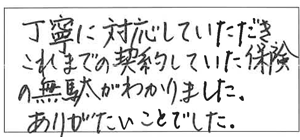 丁寧に対応していただき
これまでの契約していた保険
の無駄がわかりました。
ありがたいことでした。